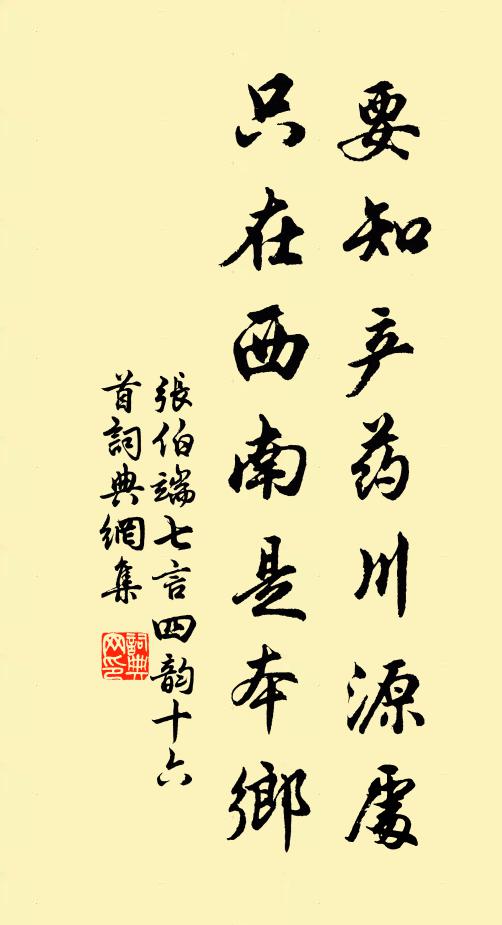 要知产药川源處
只在西南是本鄉
張伯端七言四韵十六
首詞典網集
詞典网印